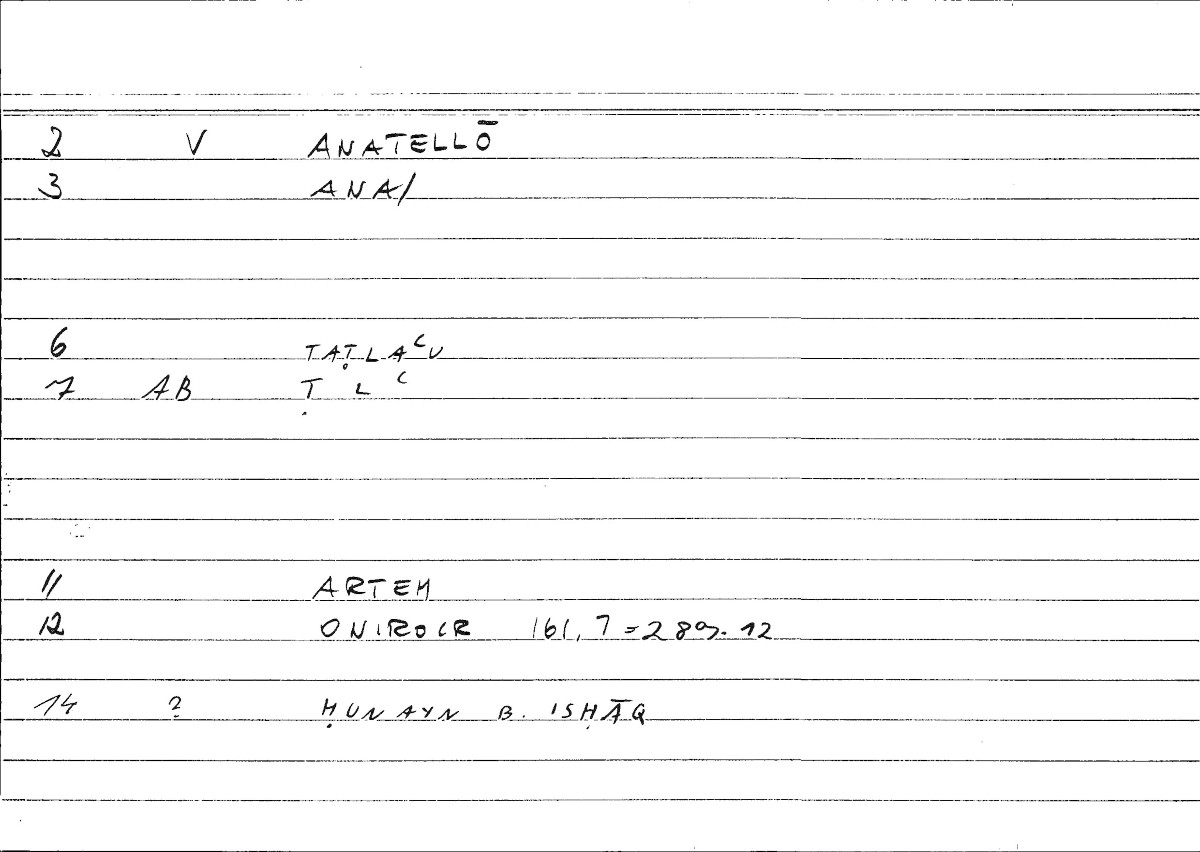 2 V ANATELLŌ
3 ANA/
6 TAṬLAʿU
7 AB Ṭ L ʿ
11 ARTEM
12 ONIROCR 161, 7 = 289. 12
14 ? ḤUNAYN B. ISḤĀQ